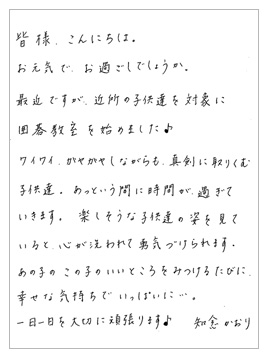 皆様、こんにちは。
お元気で、お過ごしでしょうか。
最近ですが、近所の子供達を対象に
囲碁教室を始めました♪
ワイワイ、がやがやしながらも、真剣に取りくむ
子供達。あっという間に時間が、過ぎて
いきます。楽しそうな子供達の姿を見て
いると、心が洗われて勇気づけられます。
あの子の この子のいいところをみつけるたびに、
幸せな気持ちで いっぱいに…。
一日一日を大切に頑張ります♪ 知念かおり